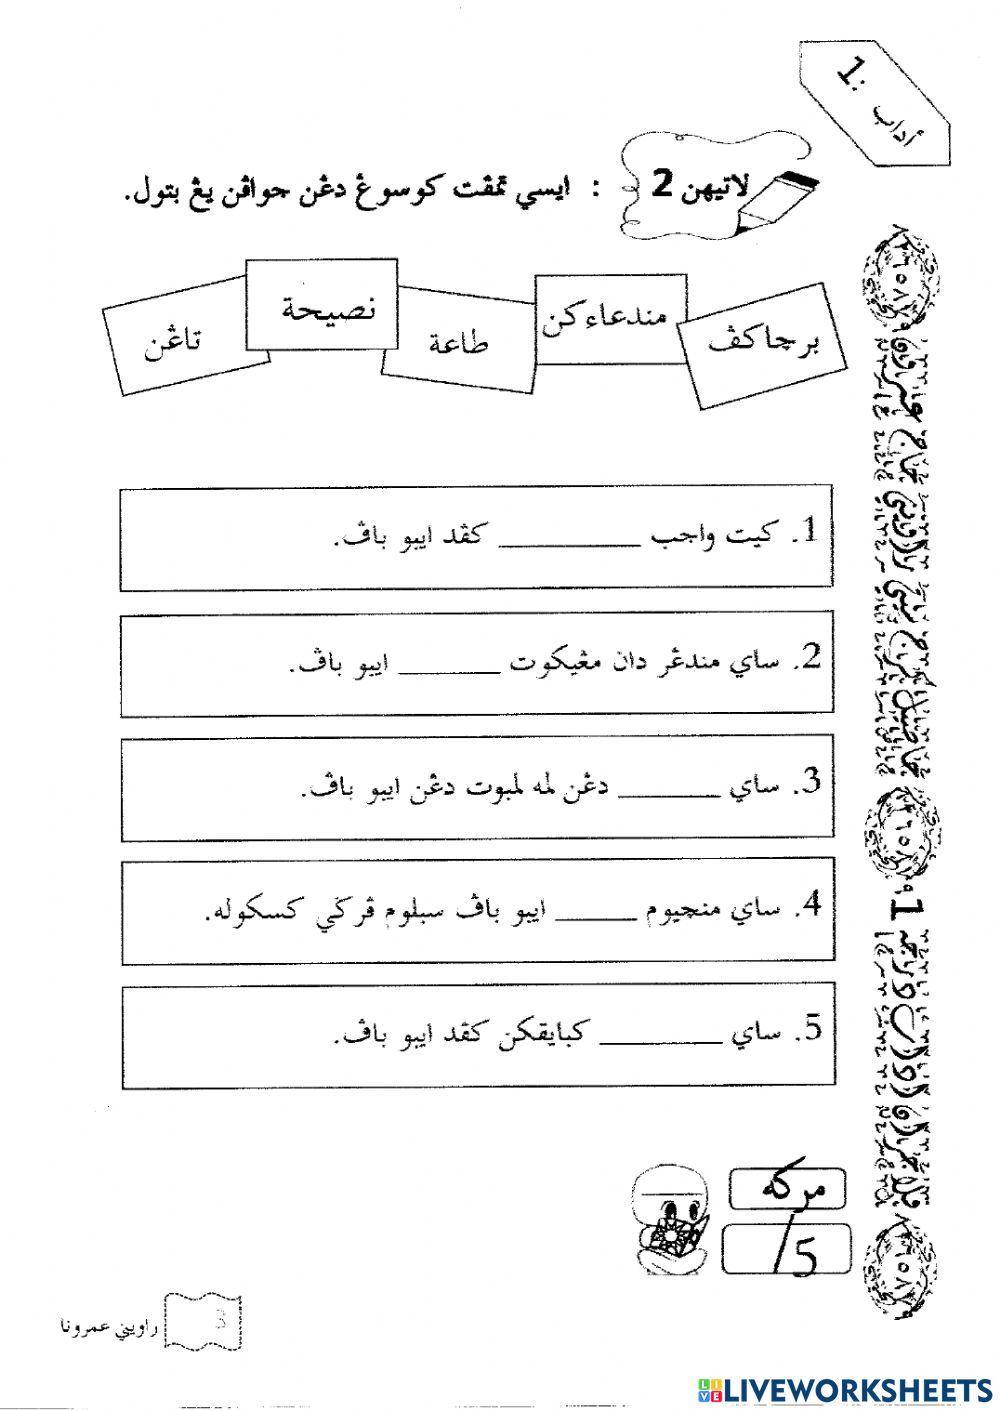 أداب :1
لاتيهن 2 : ايسي تمڤت كوسوڠ دڠن جواڤن يڠ بتول.
برچاكڤ
مندعاءكن
طاعة
نصيحة
تاڠن
1. كيت واجب __________ كڤد ايبو باڤ.
2. ساي مندڠر دان مڠيكوت _______ ايبو باڤ.
3. ساي _________ دڠن لمه لمبوت دڠن ايبو باڤ.
4. ساي منچيوم ______ ايبو باڤ سبلوم ڤركي كسكوله.
5. ساي _________ كبايقكن كڤد ايبو باڤ.
مركه
/5
3
راويني عمرونا
LIVEWORKSHEETS